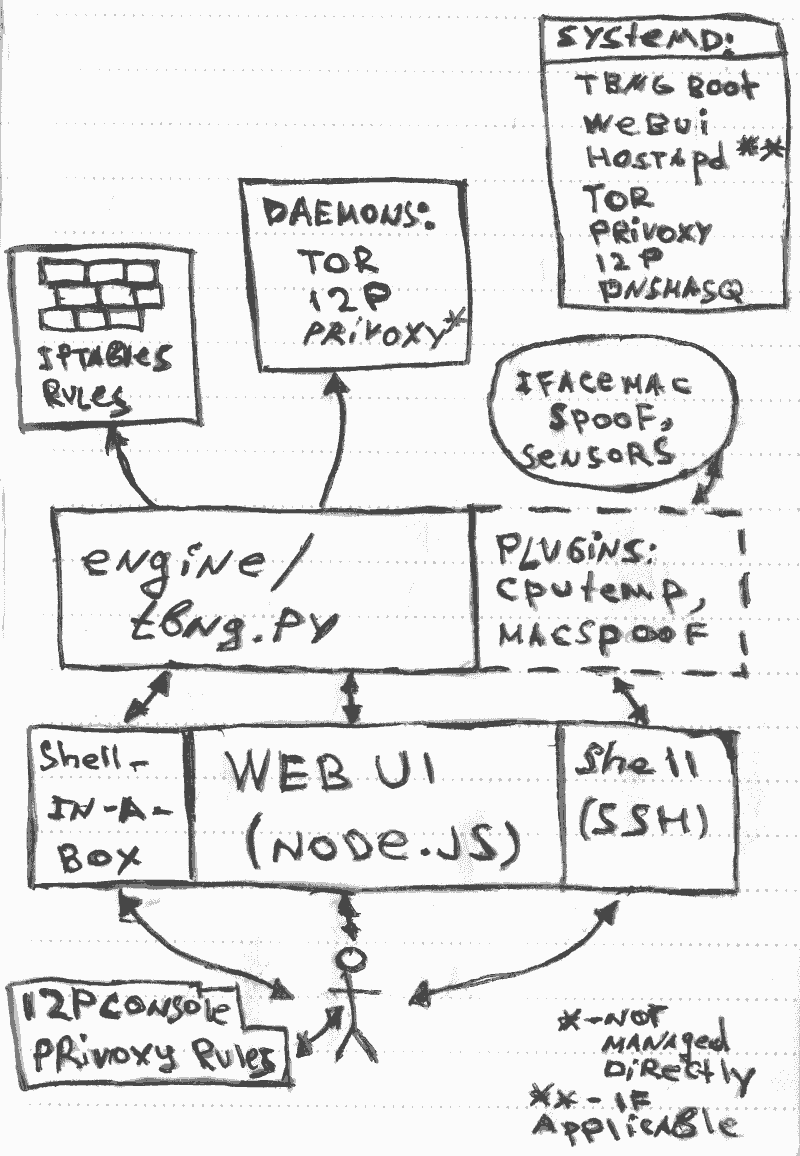 SYSTEMD:
TBNG BOOT
WEBUI
HOSTAPD **
TOR
PRIVOXY
I2P
DNSMASQ
DAEMONS:
TOR
I2P
PRIVOXY*
IPTABLES
RULES
IFACE MAC
SPOOF,
SENSORS
engine/
tbng.py
PLUGINS:
cputemp,
MACSPOOF
Shell-
IN-A-
BOX
WEB UI
(NODE.JS)
Shell
(SSH)
I2P CONSOLE
PRIVOXY RULES
*-NOT
MANAGED
DIRECTLY
**-IF
APPLICABLE